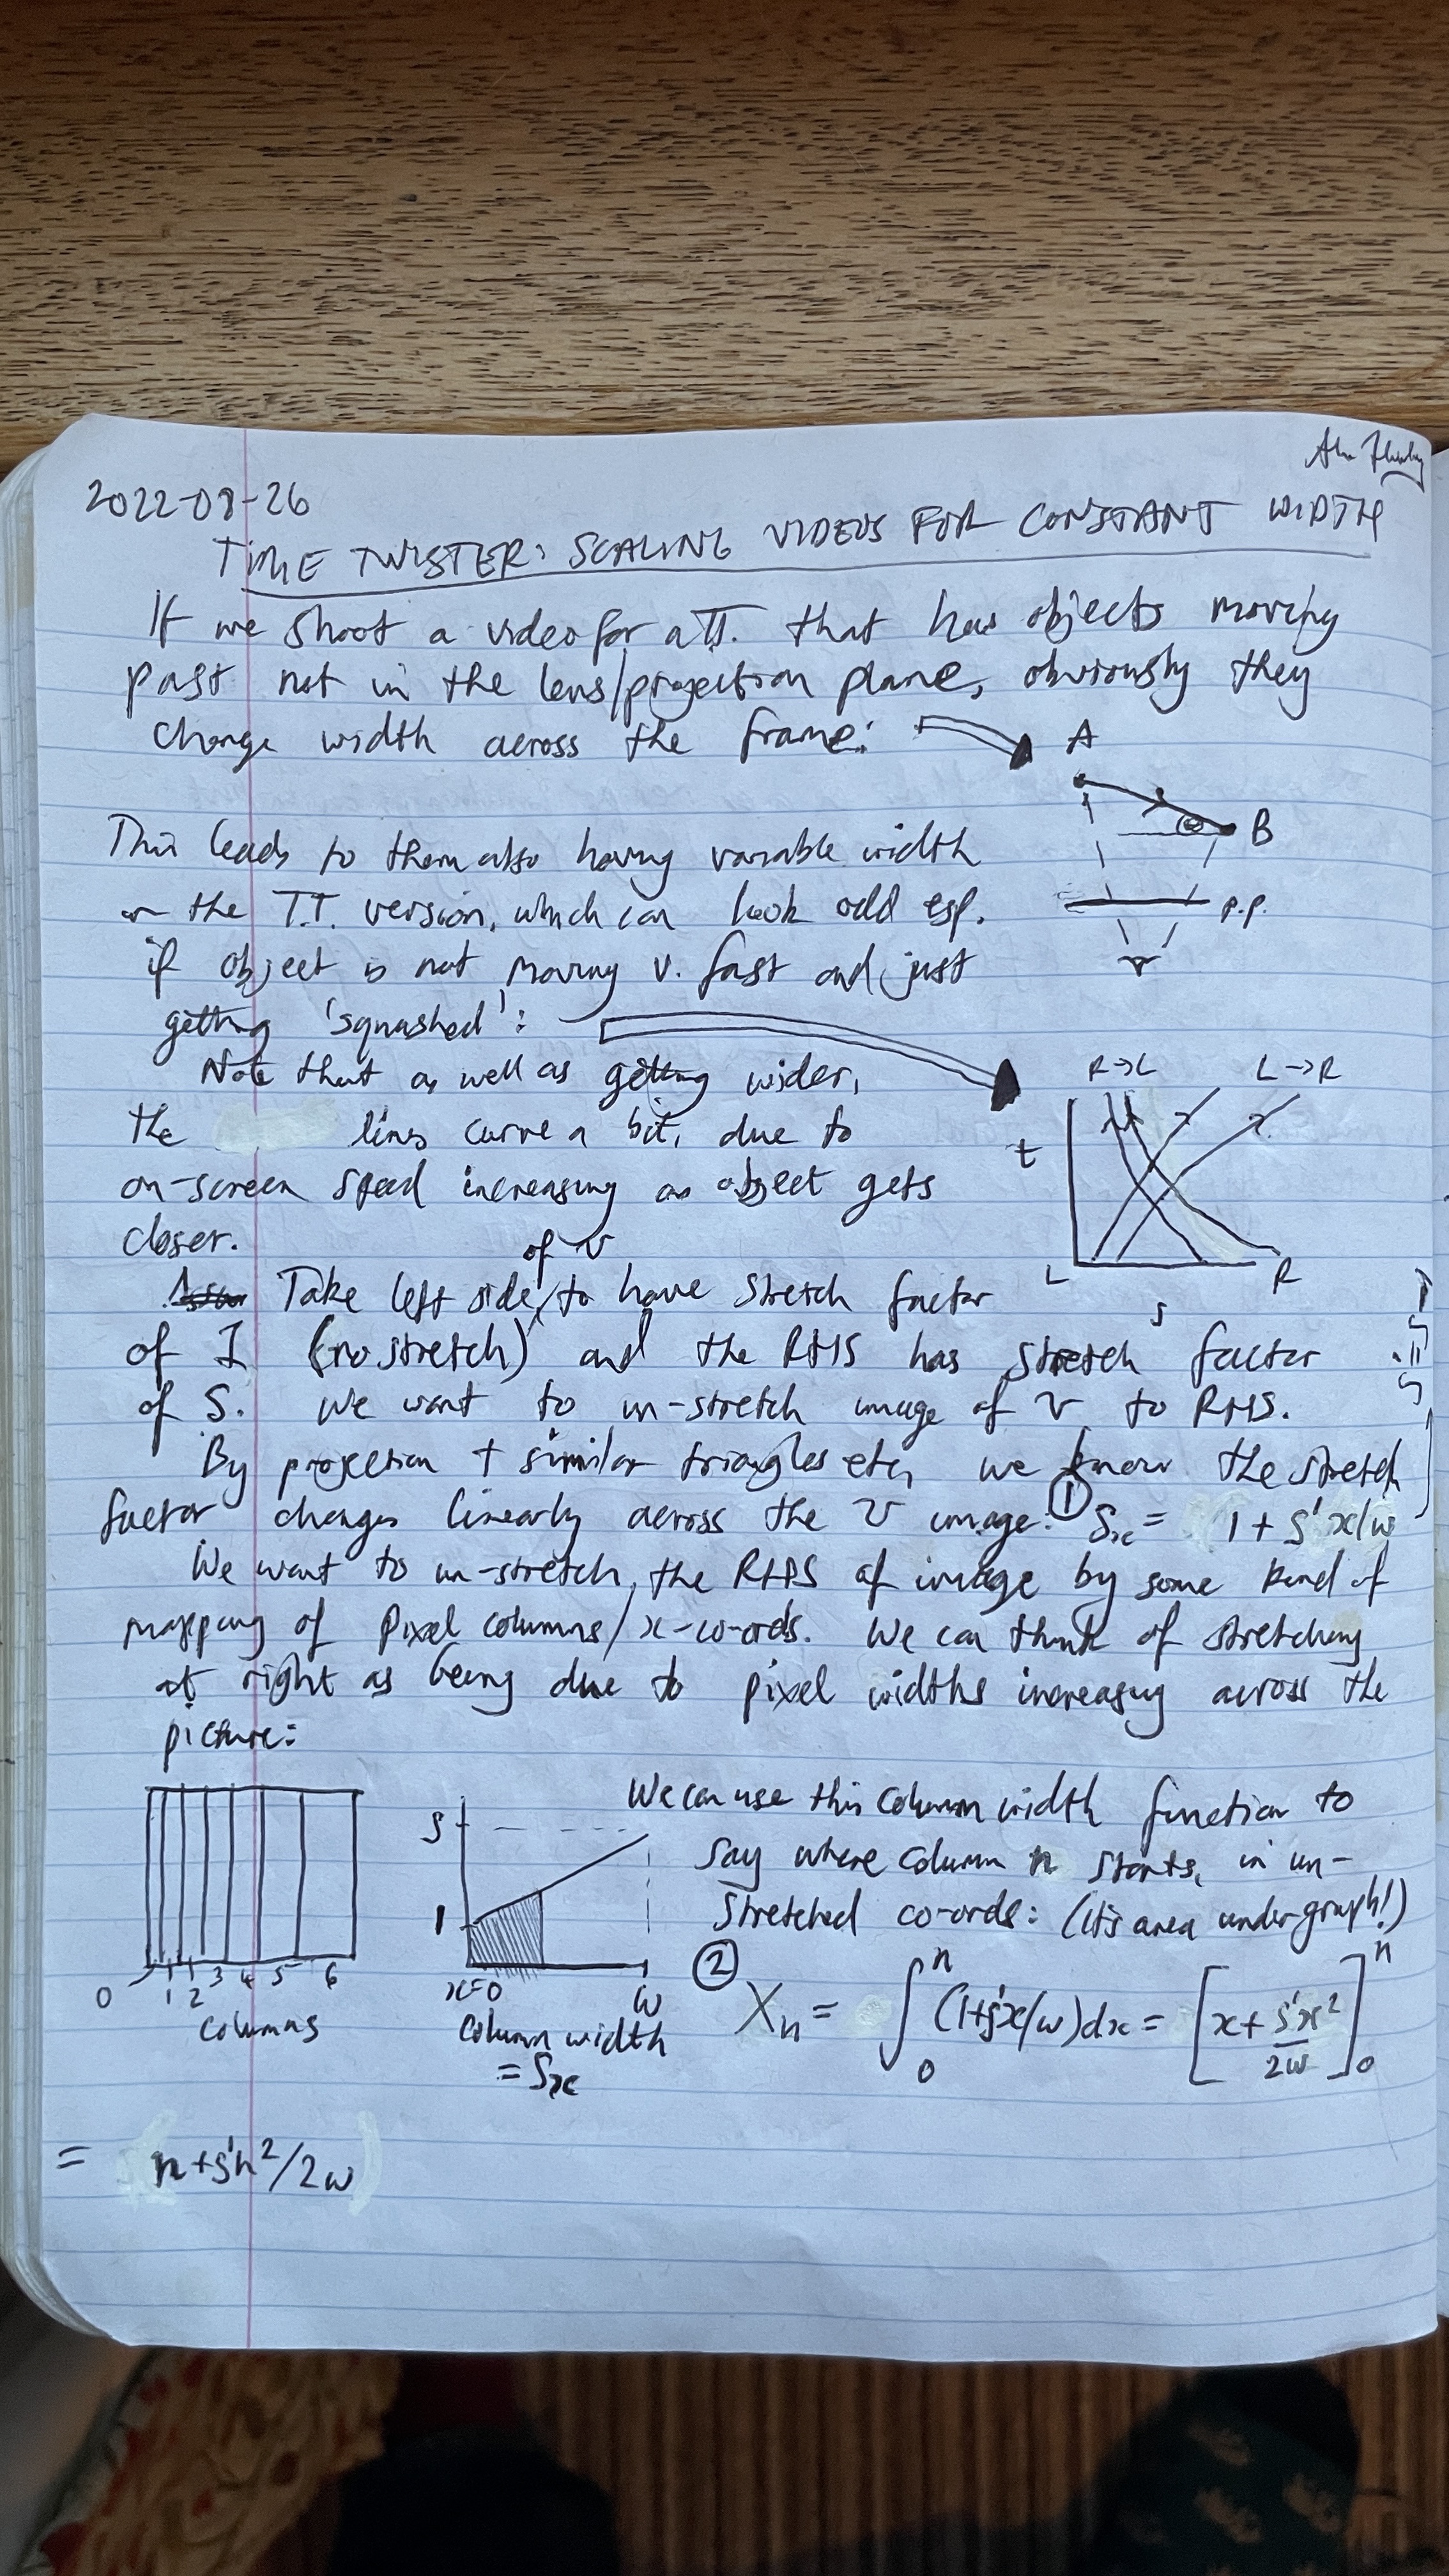 2022-08-26
TIME TWISTER: SCALING VIDEOS FOR CONSTANT WIDTH
If we shoot a video for a T.T. that has objects moving
past not in the lens/projection plane, obviously they
change width across the frame:
A
B
p.p.
This leads to them also having variable width
in the T.T. version, which can look odd esp.
if object is not moving v. fast and just
getting 'squashed':
Note that as well as getting wider,
the lines curve a bit, due to
on-screen speed increasing as object gets
closer.
R→L L→R
t
L R
s
Take left side of v to have stretch factor
of 1 (no stretch) and the RHS has stretch factor
of S. We want to un-stretch image of v to RHS.
By projection + similar triangles etc, we know the stretch
factor changes linearly across the v image: ① Sx = 1 + S'x/w
We want to un-stretch the RHS of image by some kind of
mapping of pixel columns/x-co-ords. We can think of stretching
at right as being due to pixel widths increasing across the
picture:
0 1 2 3 4 5 6
columns
S
1
x=0 w
column width
= Sx
We can use this column width function to
say where column n starts, in un-
stretched co-ords: (it's area under graph!)
② Xn = ∫₀ⁿ (1+S'x/w)dx = [x + S'x²/2w]₀ⁿ
= (n+S'n²/2w)